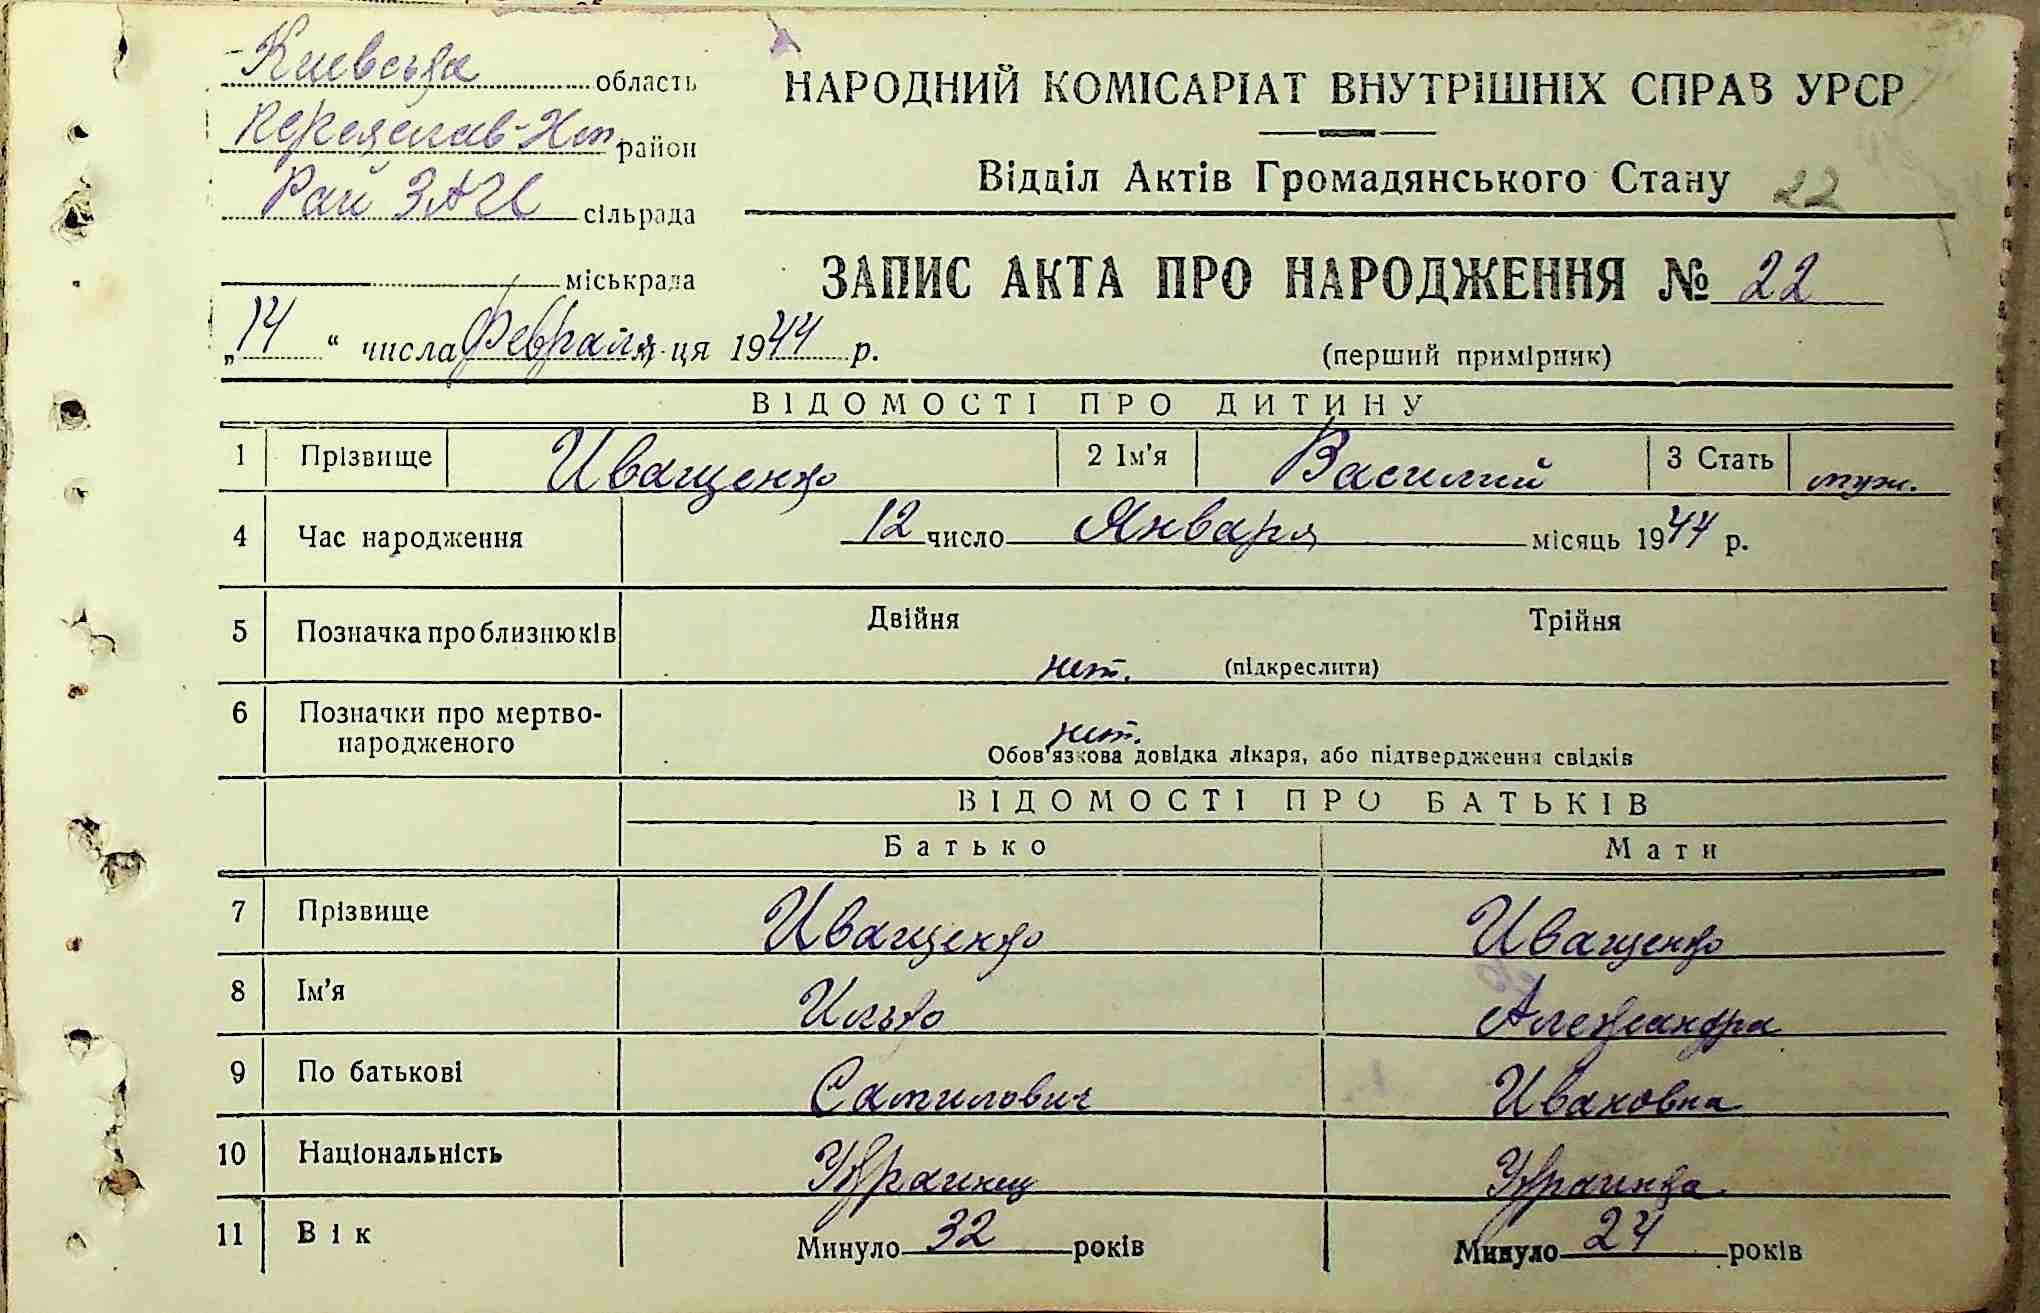 Киевська область
Переяслав-Хм район
Рай ЗАГС сільрада
міськрада
НАРОДНИЙ КОМІСАРІАТ ВНУТРІШНІХ СПРАВ УРСР
Відділ Актів Громадянського Стану 22
ЗАПИС АКТА ПРО НАРОДЖЕННЯ № 22
„14“ числа Февраля ця 1944 р.
(перший примірник)
ВІДОМОСТІ ПРО ДИТИНУ
1 Прізвище Иващенко 2 Ім'я Василий 3 Стать муж.
4 Час народження 12 число Января місяць 1944 р.
5 Позначка про близнюків Двійня Трійня
нет. (підкреслити)
6 Позначки про мертво-
народженого нет.
Обов'язкова довідка лікаря, або підтвердження свідків
ВІДОМОСТІ ПРО БАТЬКІВ
Батько Мати
7 Прізвище Иващенко Иващенко
8 Ім'я Илько Александра
9 По батькові Самилович Ивановна
10 Національність Украинец Украинка
11 Вік Минуло 32 років Минуло 24 років